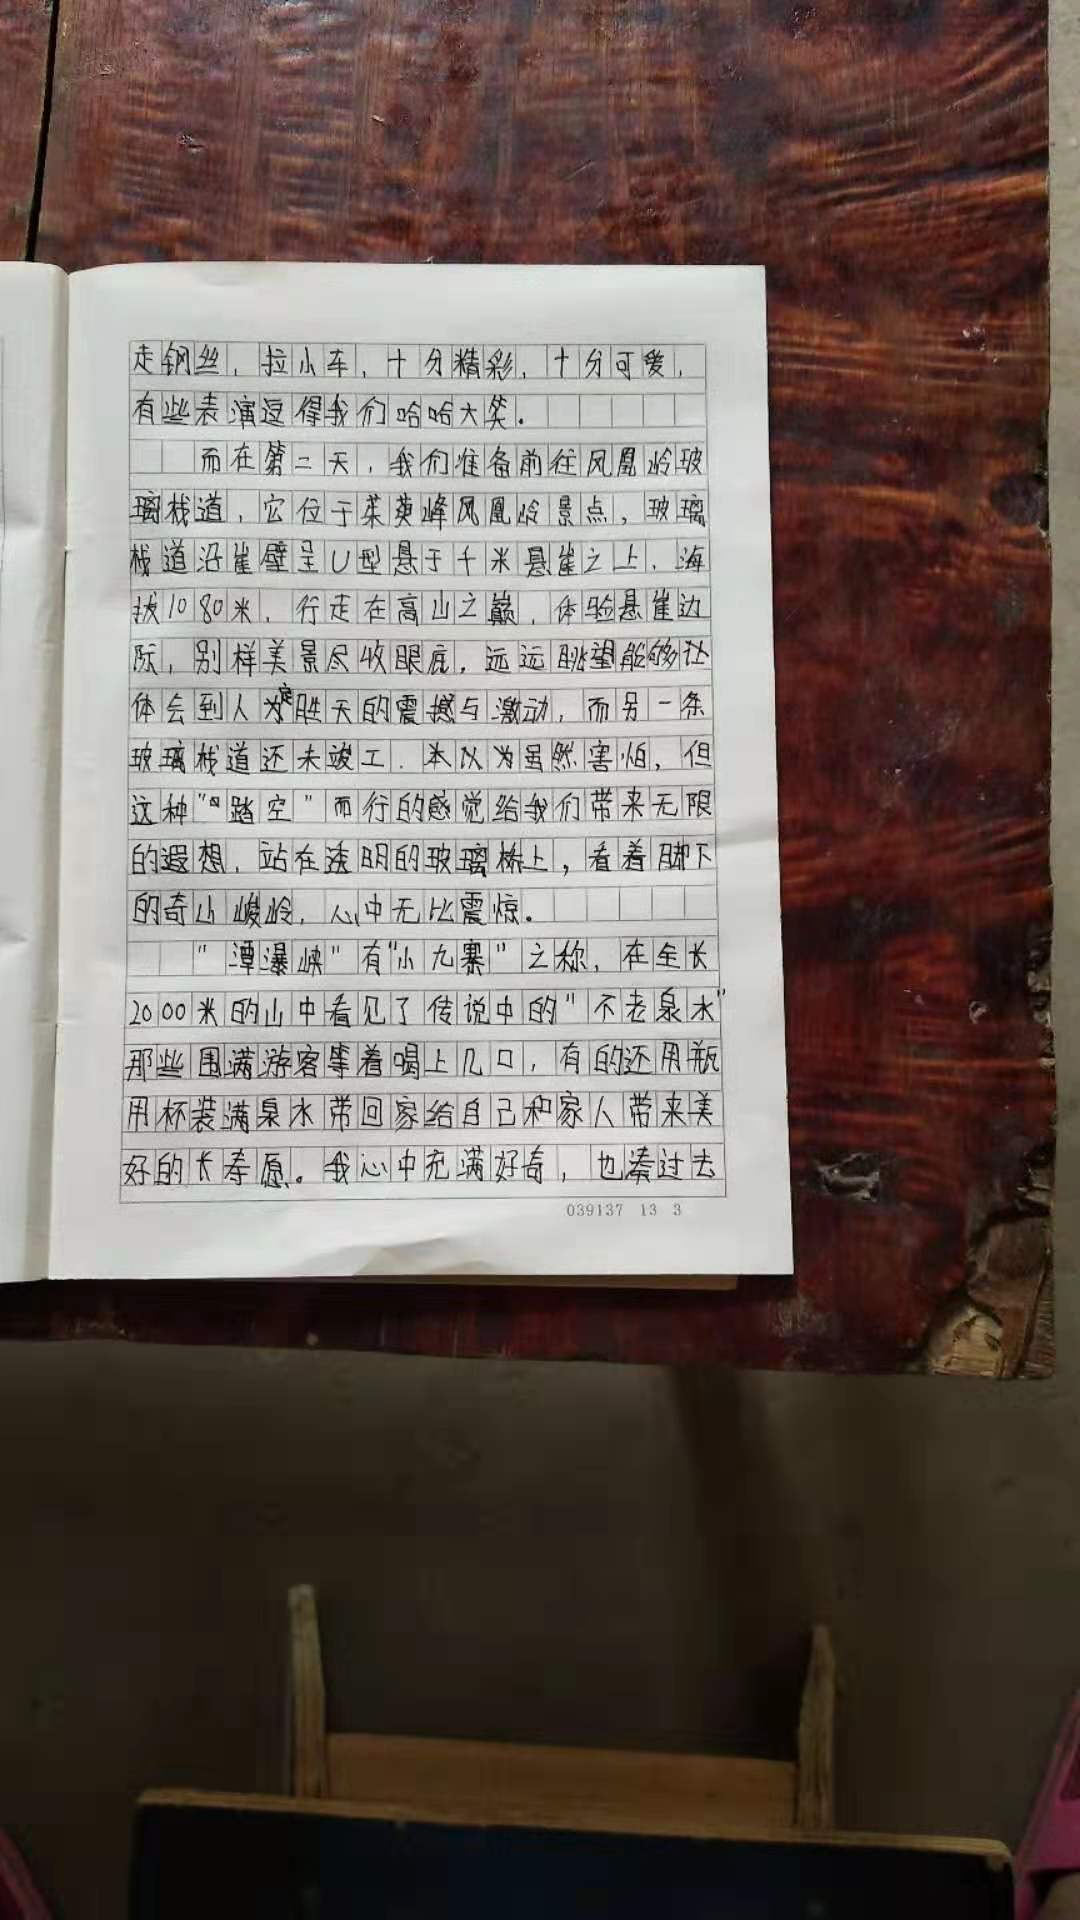 走钢丝，拉小车，十分精彩，十分可爱，
有些表演逗得我们哈哈大笑。
而在第二天，我们准备前往凤凰岭玻
璃栈道，它位于茱萸峰凤凰岭景点，玻璃
栈道沿崖壁呈U型悬于千米悬崖之上，海
拔1080米，行走在高山之巅，体验悬崖边
际，别样美景尽收眼底，远远眺望能够让
体会到人定胜天的震撼与激动，而另一条
玻璃栈道还未竣工．本以为虽然害怕，但
这种“踏空”而行的感觉给我们带来无限
的遐想，站在透明的玻璃桥上，看着脚下
的奇山峻岭，心中无比震惊。
“潭瀑峡”有“小九寨”之称，在全长
2000米的山中看见了传说中的“不老泉水”
那些围满游客等着喝上几口，有的还用瓶
用杯装满泉水带回家给自己和家人带来美
好的长寿愿。我心中充满好奇，也凑过去
039137 13 3